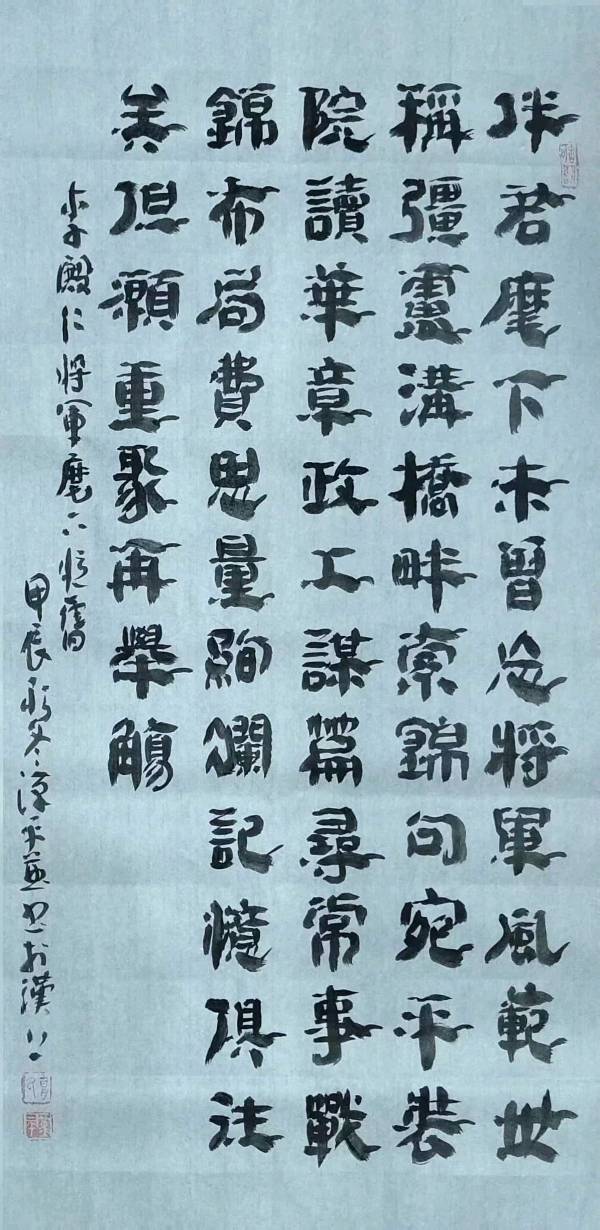 伴君麾下未曾忘將軍風範世
稱彊盧溝橋畔索錦句宛平裝
院讀華章政工謀篇尋常事戰
錦布局費思量絢爛記俱往
矣但願重聚再舉觴
李殿仁將軍麾下憶舊
甲辰初冬平並書於漢上